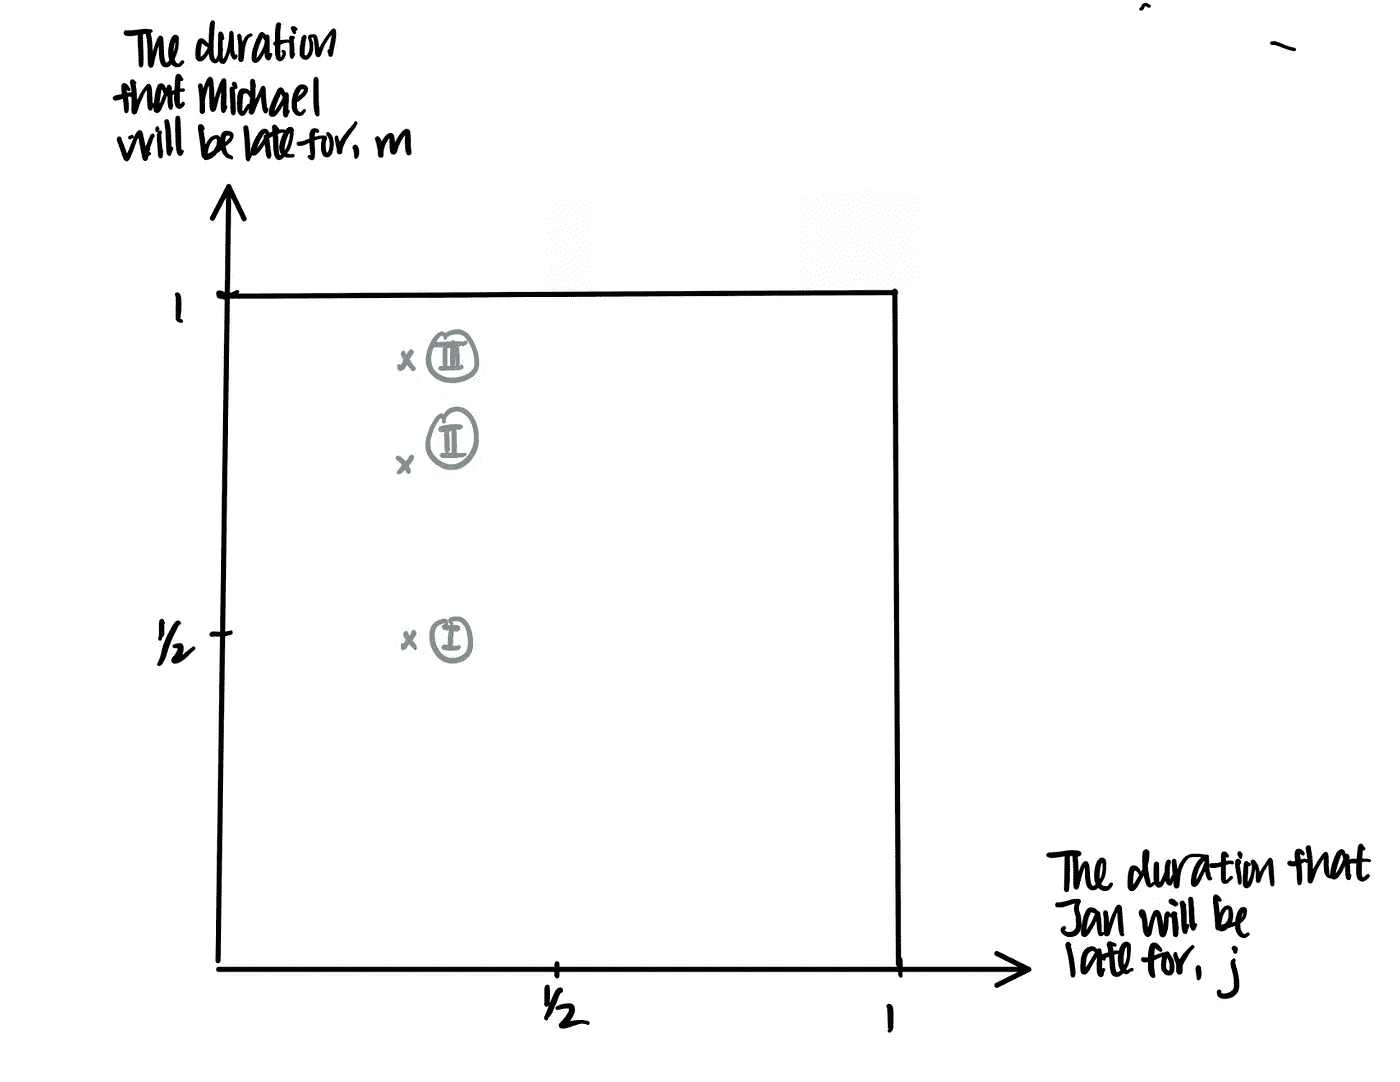 The duration
that Michael
will be late for, m
1
III
II
1/2
I
The duration that
Jan will be
late for, j
1/2
1